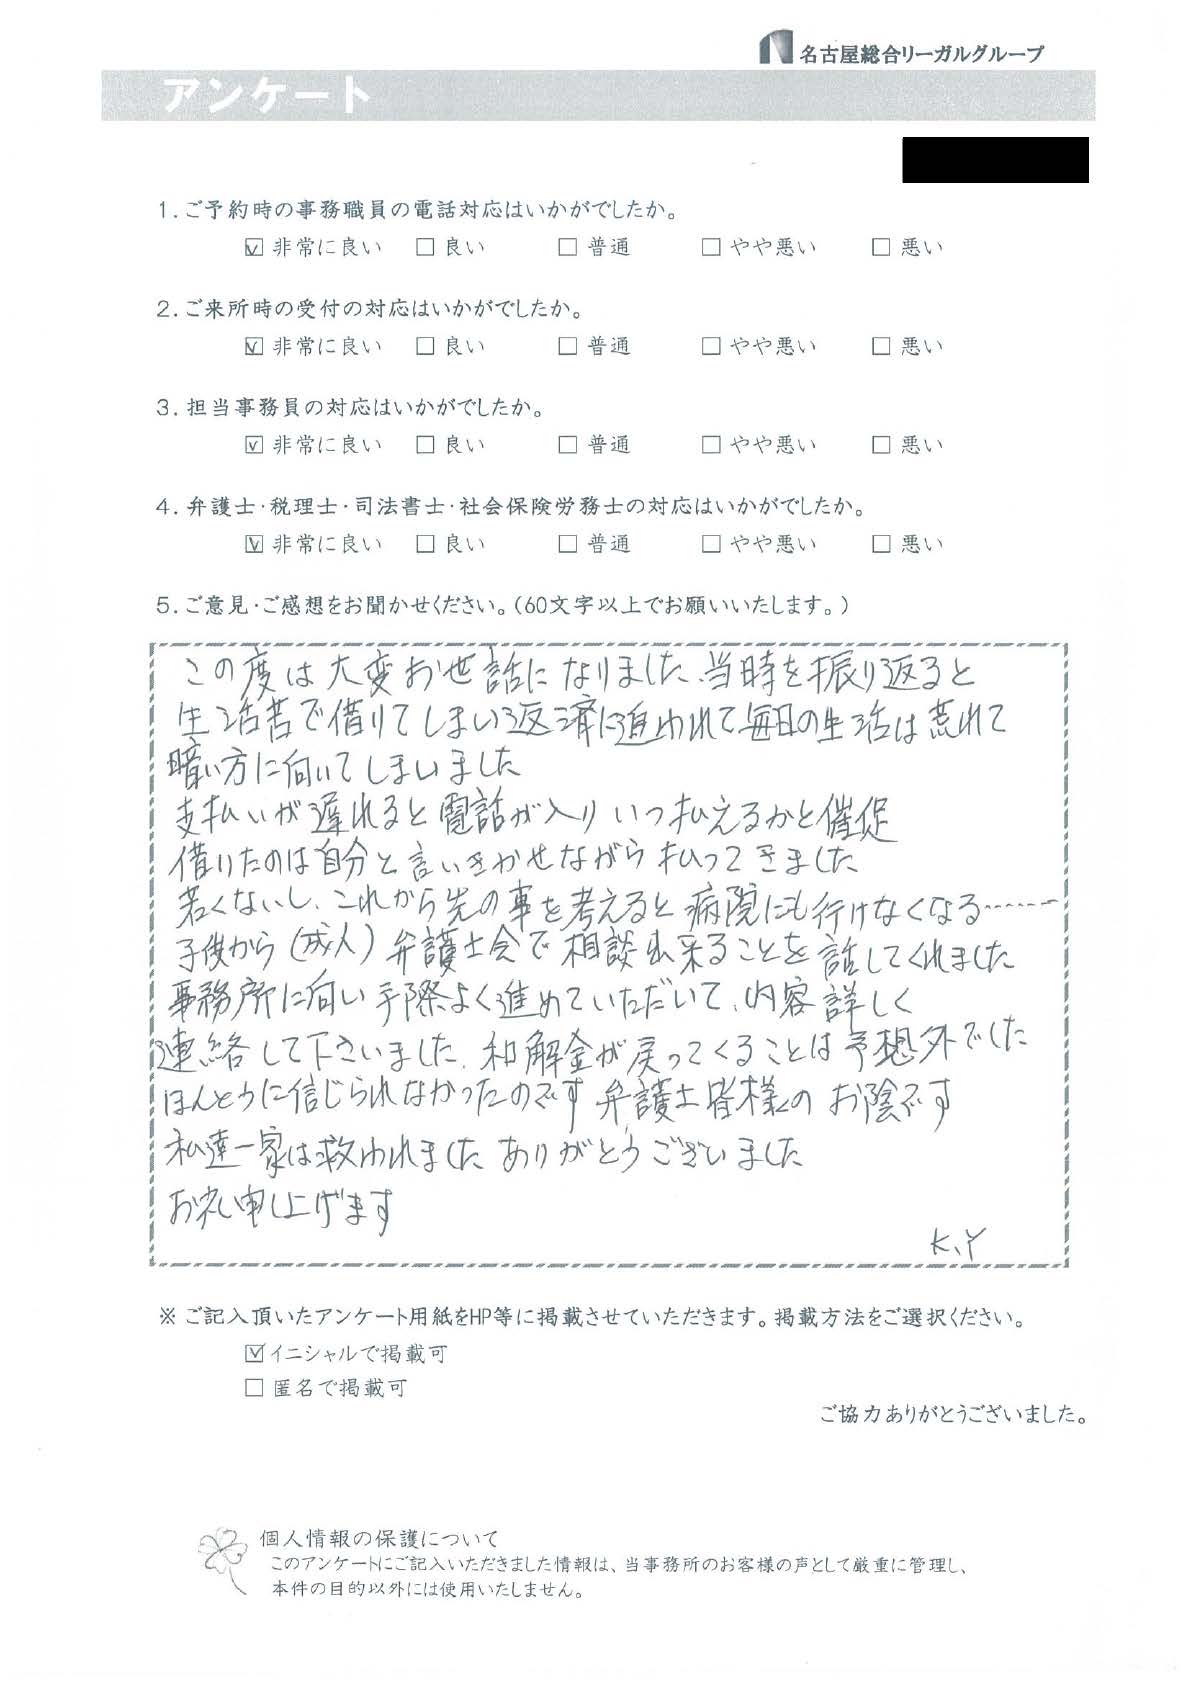 名古屋総合リーガルグループ
アンケート
1.ご予約時の事務職員の電話対応はいかがでしたか。
☑非常に良い □良い □普通 □やや悪い □悪い
2.ご来所時の受付の対応はいかがでしたか。
☑非常に良い □良い □普通 □やや悪い □悪い
3.担当事務員の対応はいかがでしたか。
☑非常に良い □良い □普通 □やや悪い □悪い
4.弁護士・税理士・司法書士・社会保険労務士の対応はいかがでしたか。
☑非常に良い □良い □普通 □やや悪い □悪い
5.ご意見・ご感想をお聞かせください。(60文字以上でお願いいたします。)
この度は大変お世話になりました、当時を振り返ると
生活苦で借りてしまい返済に追われて毎日の生活は荒れて
暗い方に向いてしまいました
支払いが遅れると電話が入りいつ払えるかと催促
借りたのは自分と言いきかせながら払ってきました
若くないし、これから先の事を考えると病院にも行けなくなる……
子供から(成人)弁護士会で相談出来ることを話してくれました
事務所に向い手際よく進めていただいて、内容詳しく
連絡して下さいました、和解金が戻ってくることは予想外でした
ほんとうに信じられなかったのです弁護士皆様のお陰です
私達一家は救われましたありがとうございました
お礼申し上げます
K、Y
※ご記入頂いたアンケート用紙をHP等に掲載させていただきます。掲載方法をご選択ください。
☑イニシャルで掲載可
□匿名で掲載可
ご協力ありがとうございました。
個人情報の保護について
このアンケートにご記入いただきました情報は、当事務所のお客様の声として厳重に管理し、
本件の目的以外には使用いたしません。